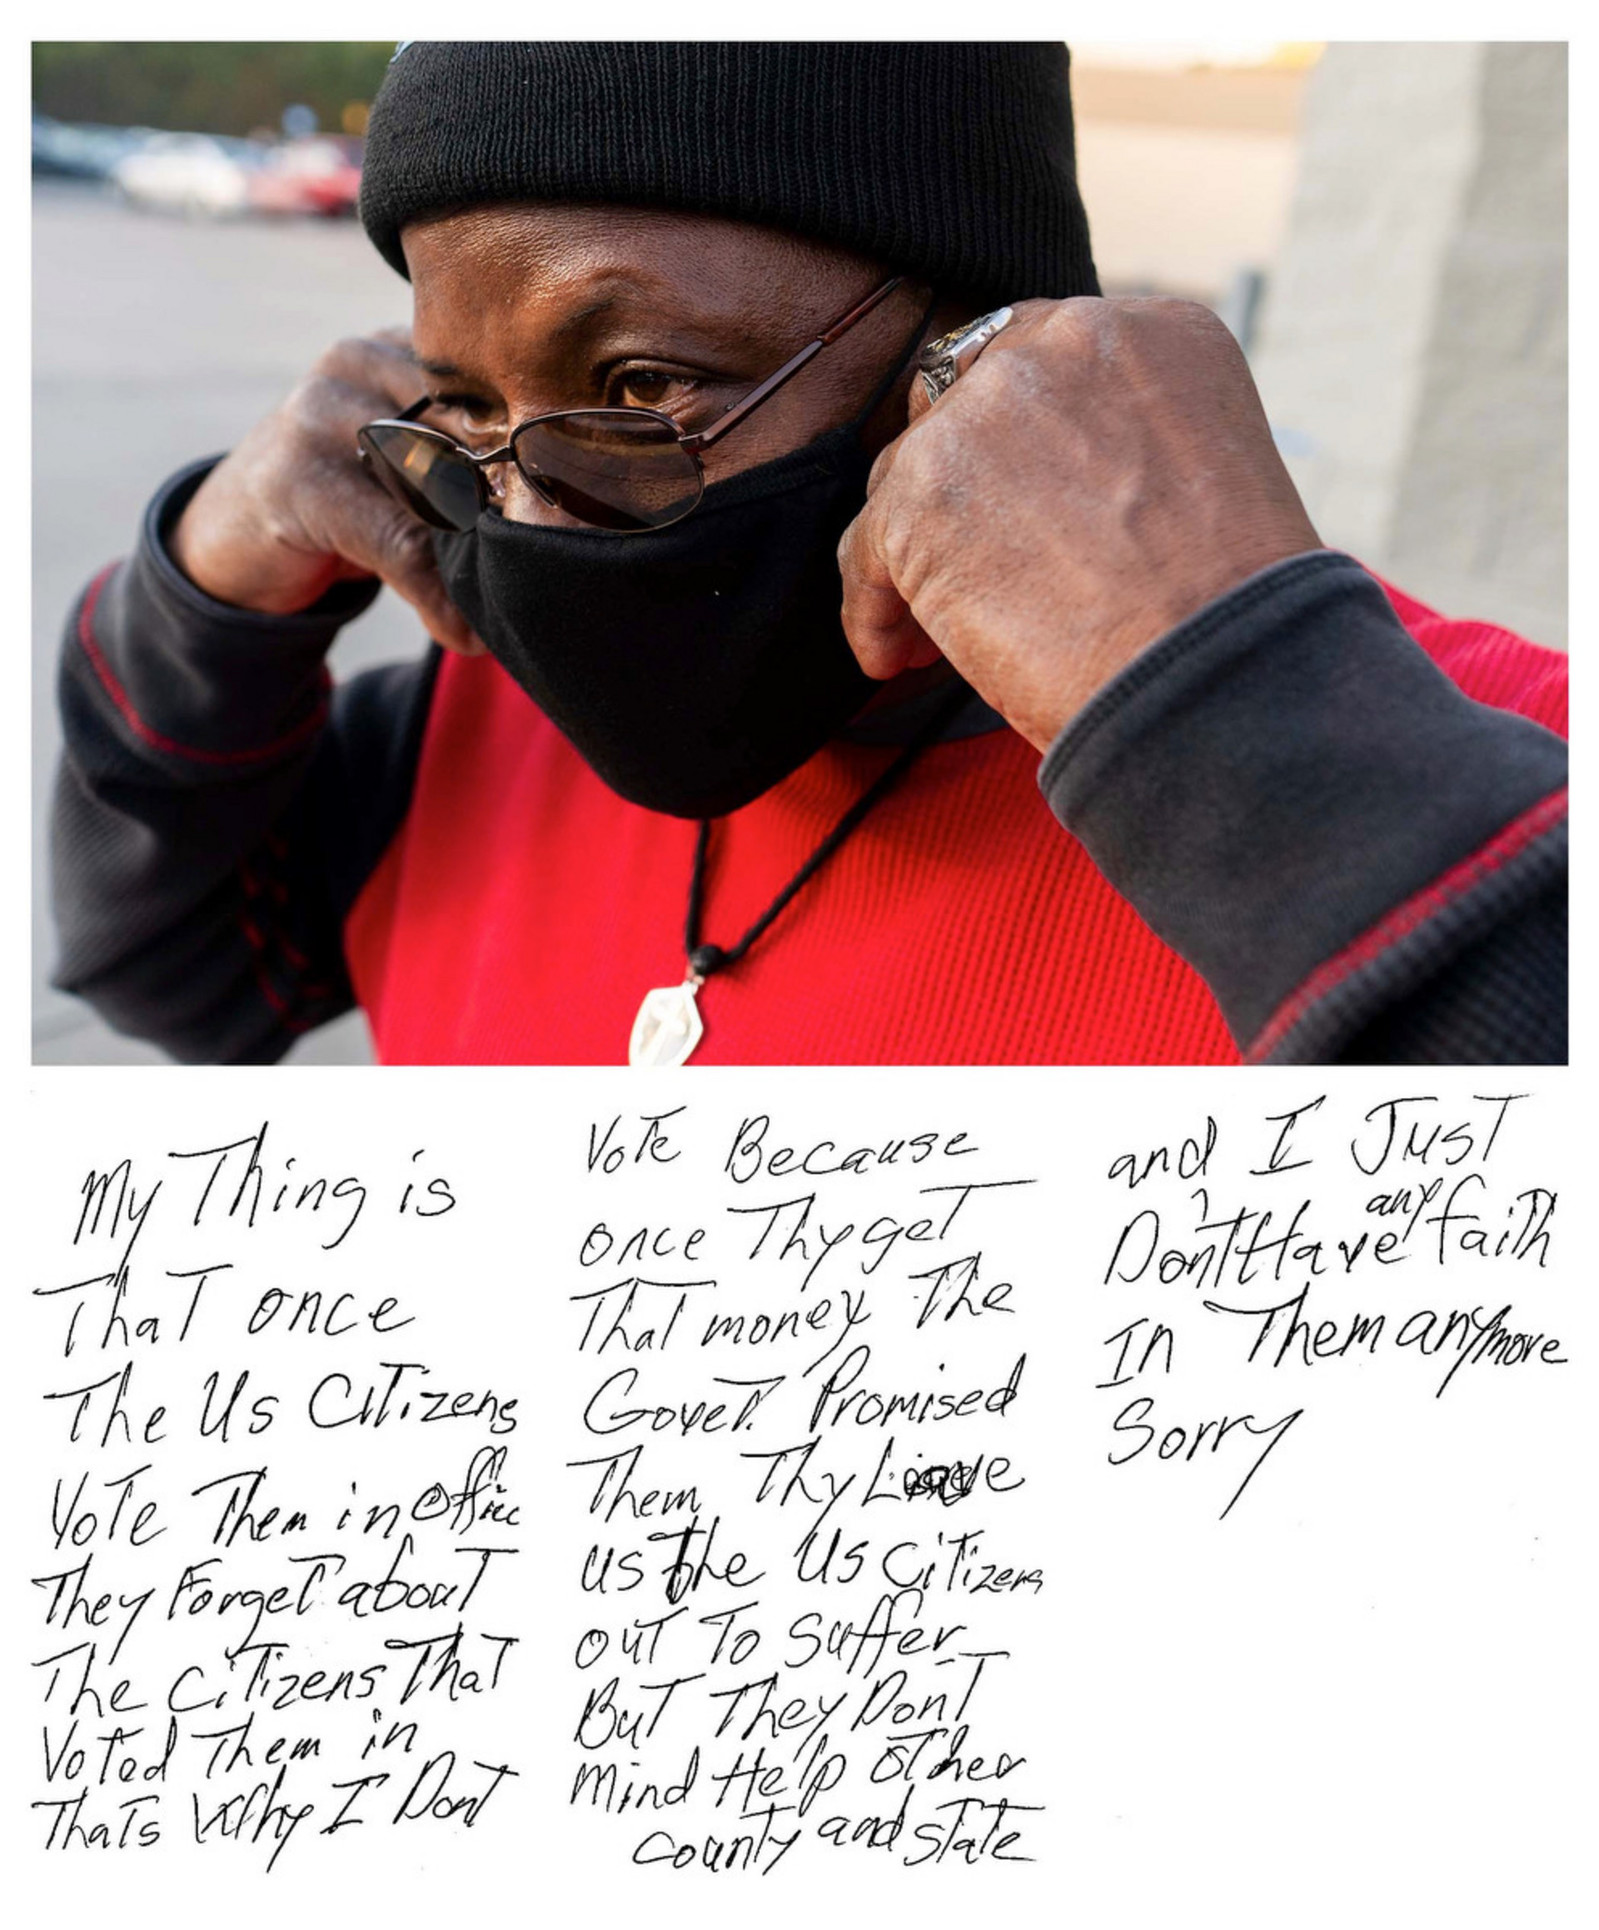 My Thing is
ThaT once
The Us CiTizens
VoTe Them in Office
They ForgeT abouT
The CiTizens ThaT
VoTed Them in
ThaTs Why I DonT
VoTe Because
once Thy geT
ThaT money The
GoveT. Promised
Them Thy
us the Us CiTizens
ouT To Suffer
BuT They DonT
mind Help oTher
counTy and sTaTe
and I JusT
Don'T Have any faiTh
In Them anymore
Sorry